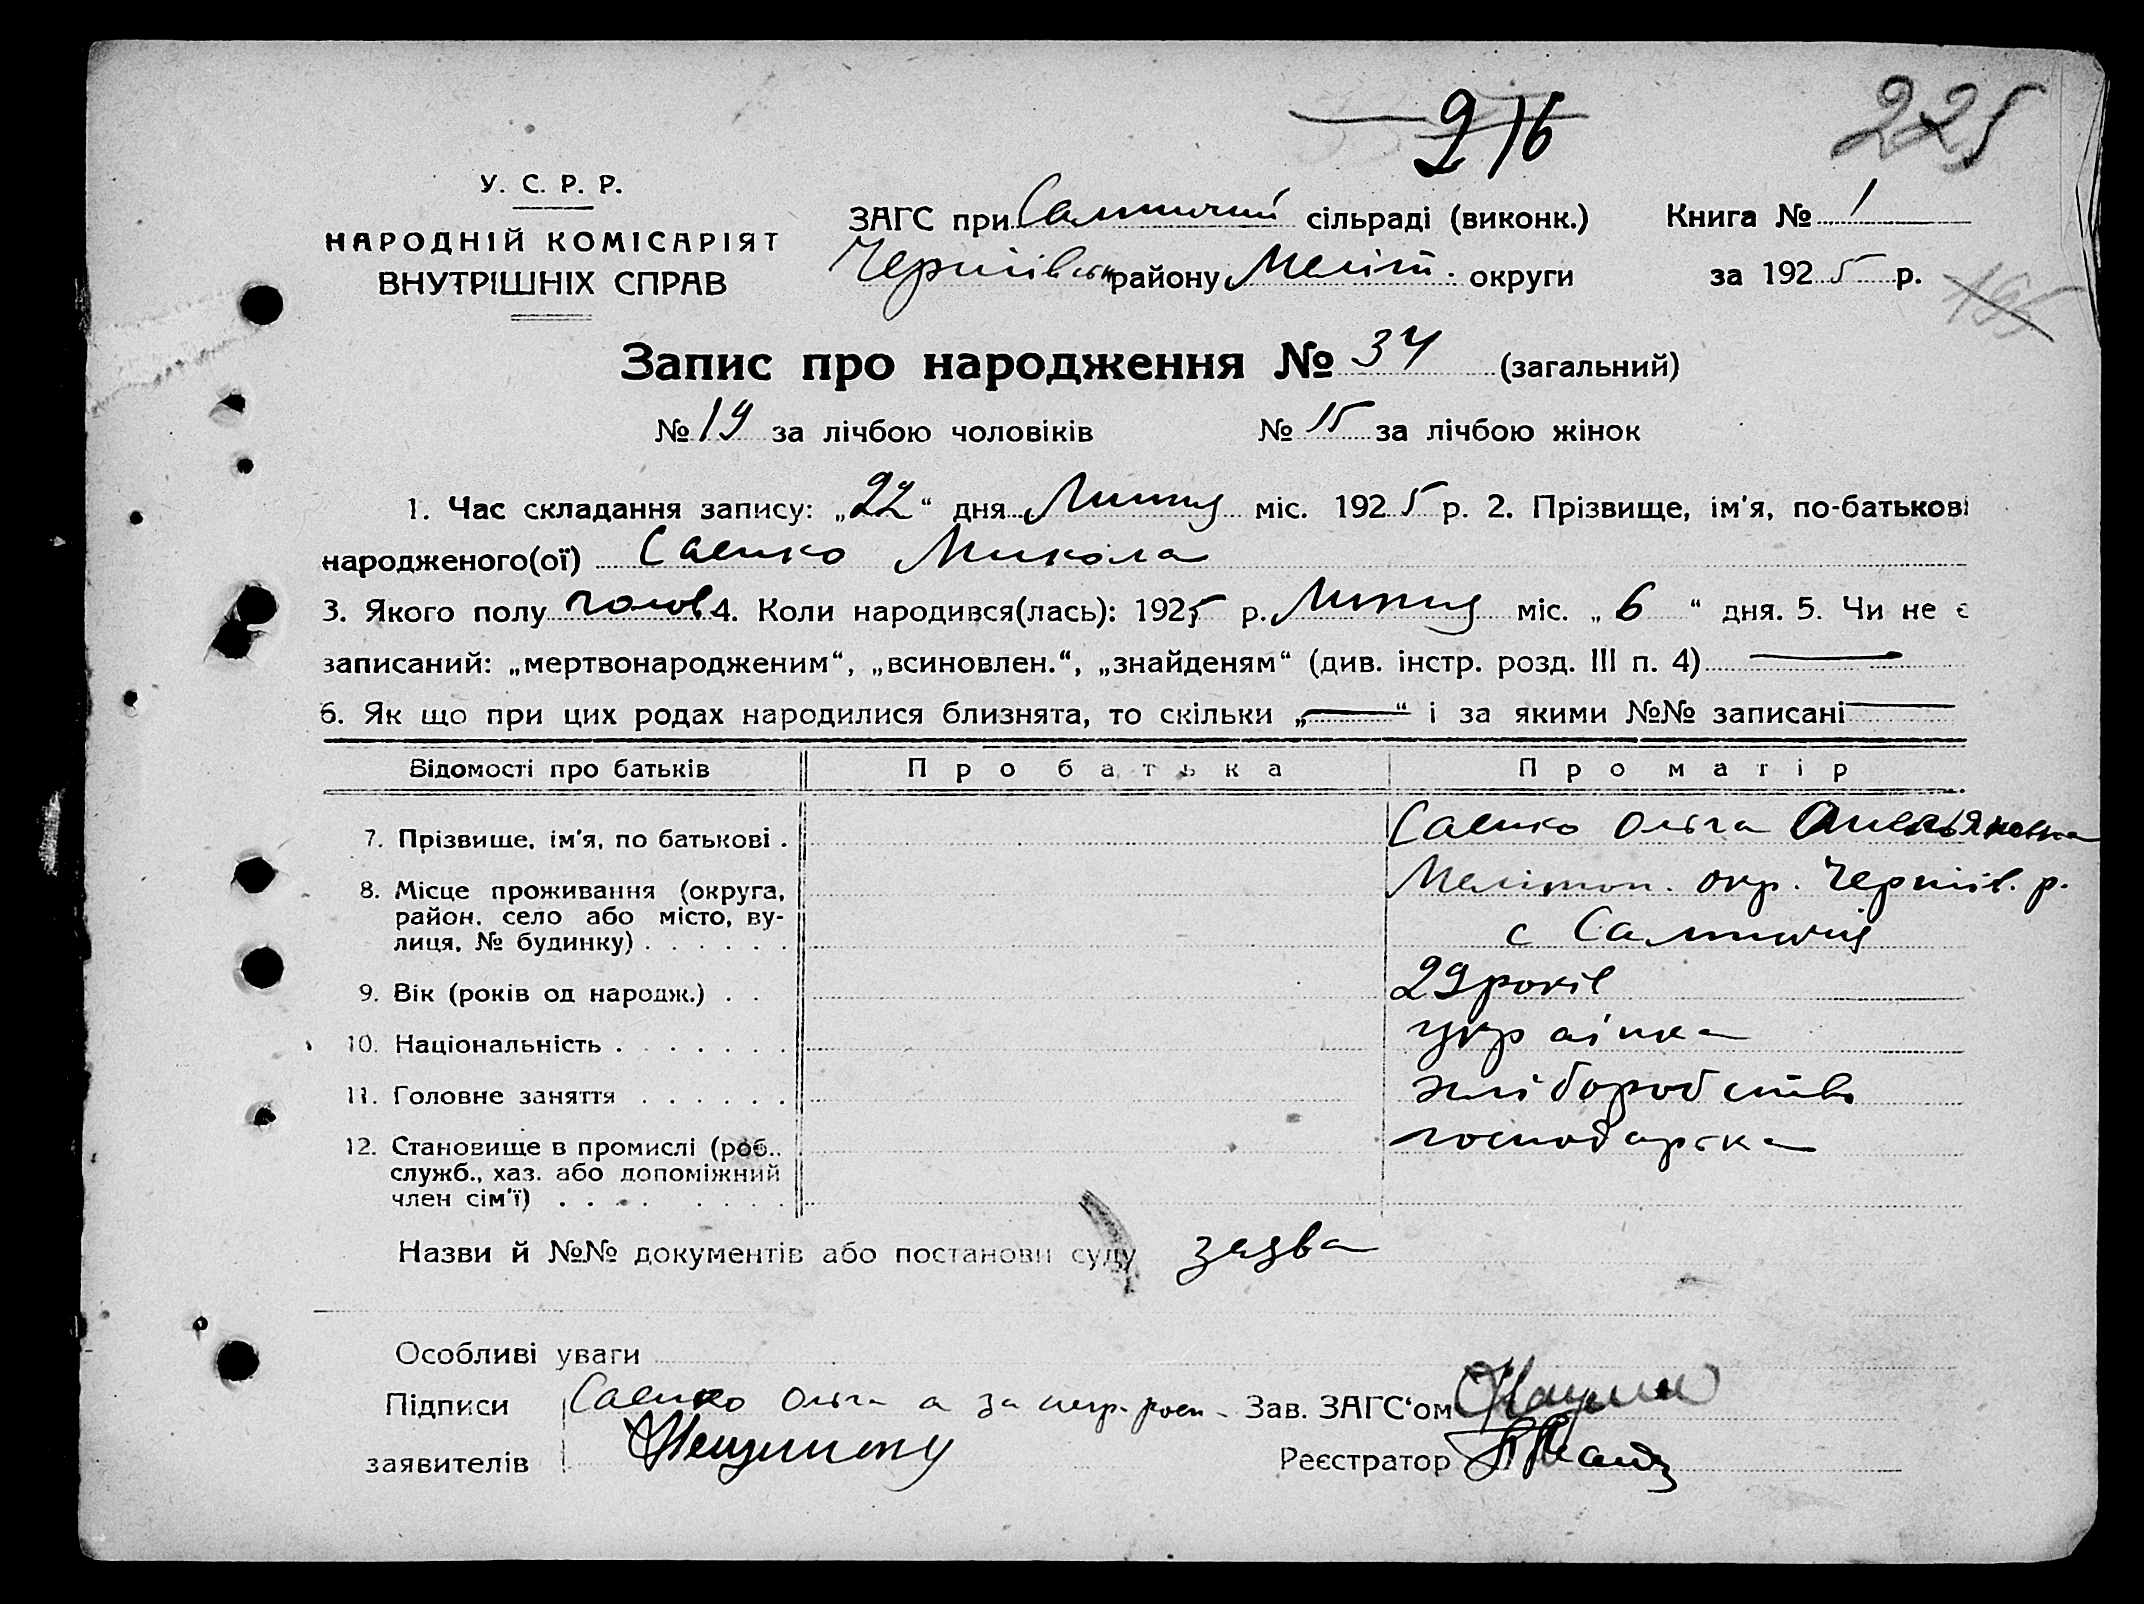 216
225
У. С. Р. Р.
НАРОДНІЙ КОМІСАРІЯТ
ВНУТРІШНІХ СПРАВ
ЗАГС при Салтичий сільраді (виконк.)
Книга № 1
Чернігівськ району Меліт. округи
за 1925 р.
195
Запис про народження № 34 (загальний)
№ 19 за лічбою чоловіків № 15 за лічбою жінок
1. Час складання запису: „22“ дня Липня міс. 1925 р. 2. Прізвище, ім'я, по-батькові
народженого(ої) Саенко Микола
3. Якого полу чолов 4. Коли народився(лась): 1925 р. Липня міс. „6“ дня. 5. Чи не є
записаний: „мертвонародженим“, „всиновлен.“, „знайденям“ (див. інстр. розд. III п. 4) —
6. Як що при цих родах народилися близнята, то скільки „—“ і за якими №№ записані —
Відомості про батьків Про батька Про матір
7. Прізвище, ім'я, по батькові . Саенко Ольга Омельяновна
8. Місце проживання (округа, Мелітоп. окр. Черніг. р.
район, село або місто, ву-
лиця, № будинку) . . . . . . с Салтичія
9. Вік (років од народж.) . . 29 років
10. Національність . . . . . . . українка
11. Головне заняття . . . . . . хліборобство
12. Становище в промислі (роб., господарька
служб., хаз. або допоміжний
член сім'ї) . . . . . . . .
Назви й №№ документів або постанови суду заява
Особливі уваги
Підписи Саенко Ольга а за негр. росп. Зав. ЗАГС‘ом
заявителів Реєстратор